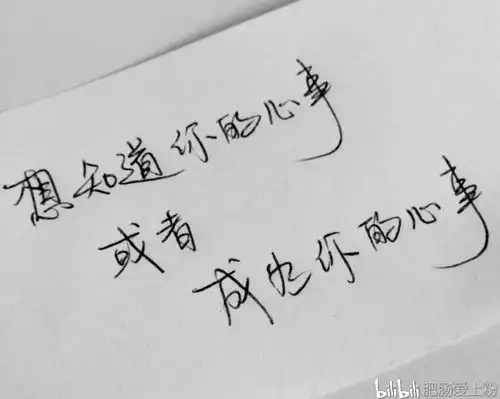 想知道你的心事
或者
成为你的心事
bilibili 肥肠爱上粉